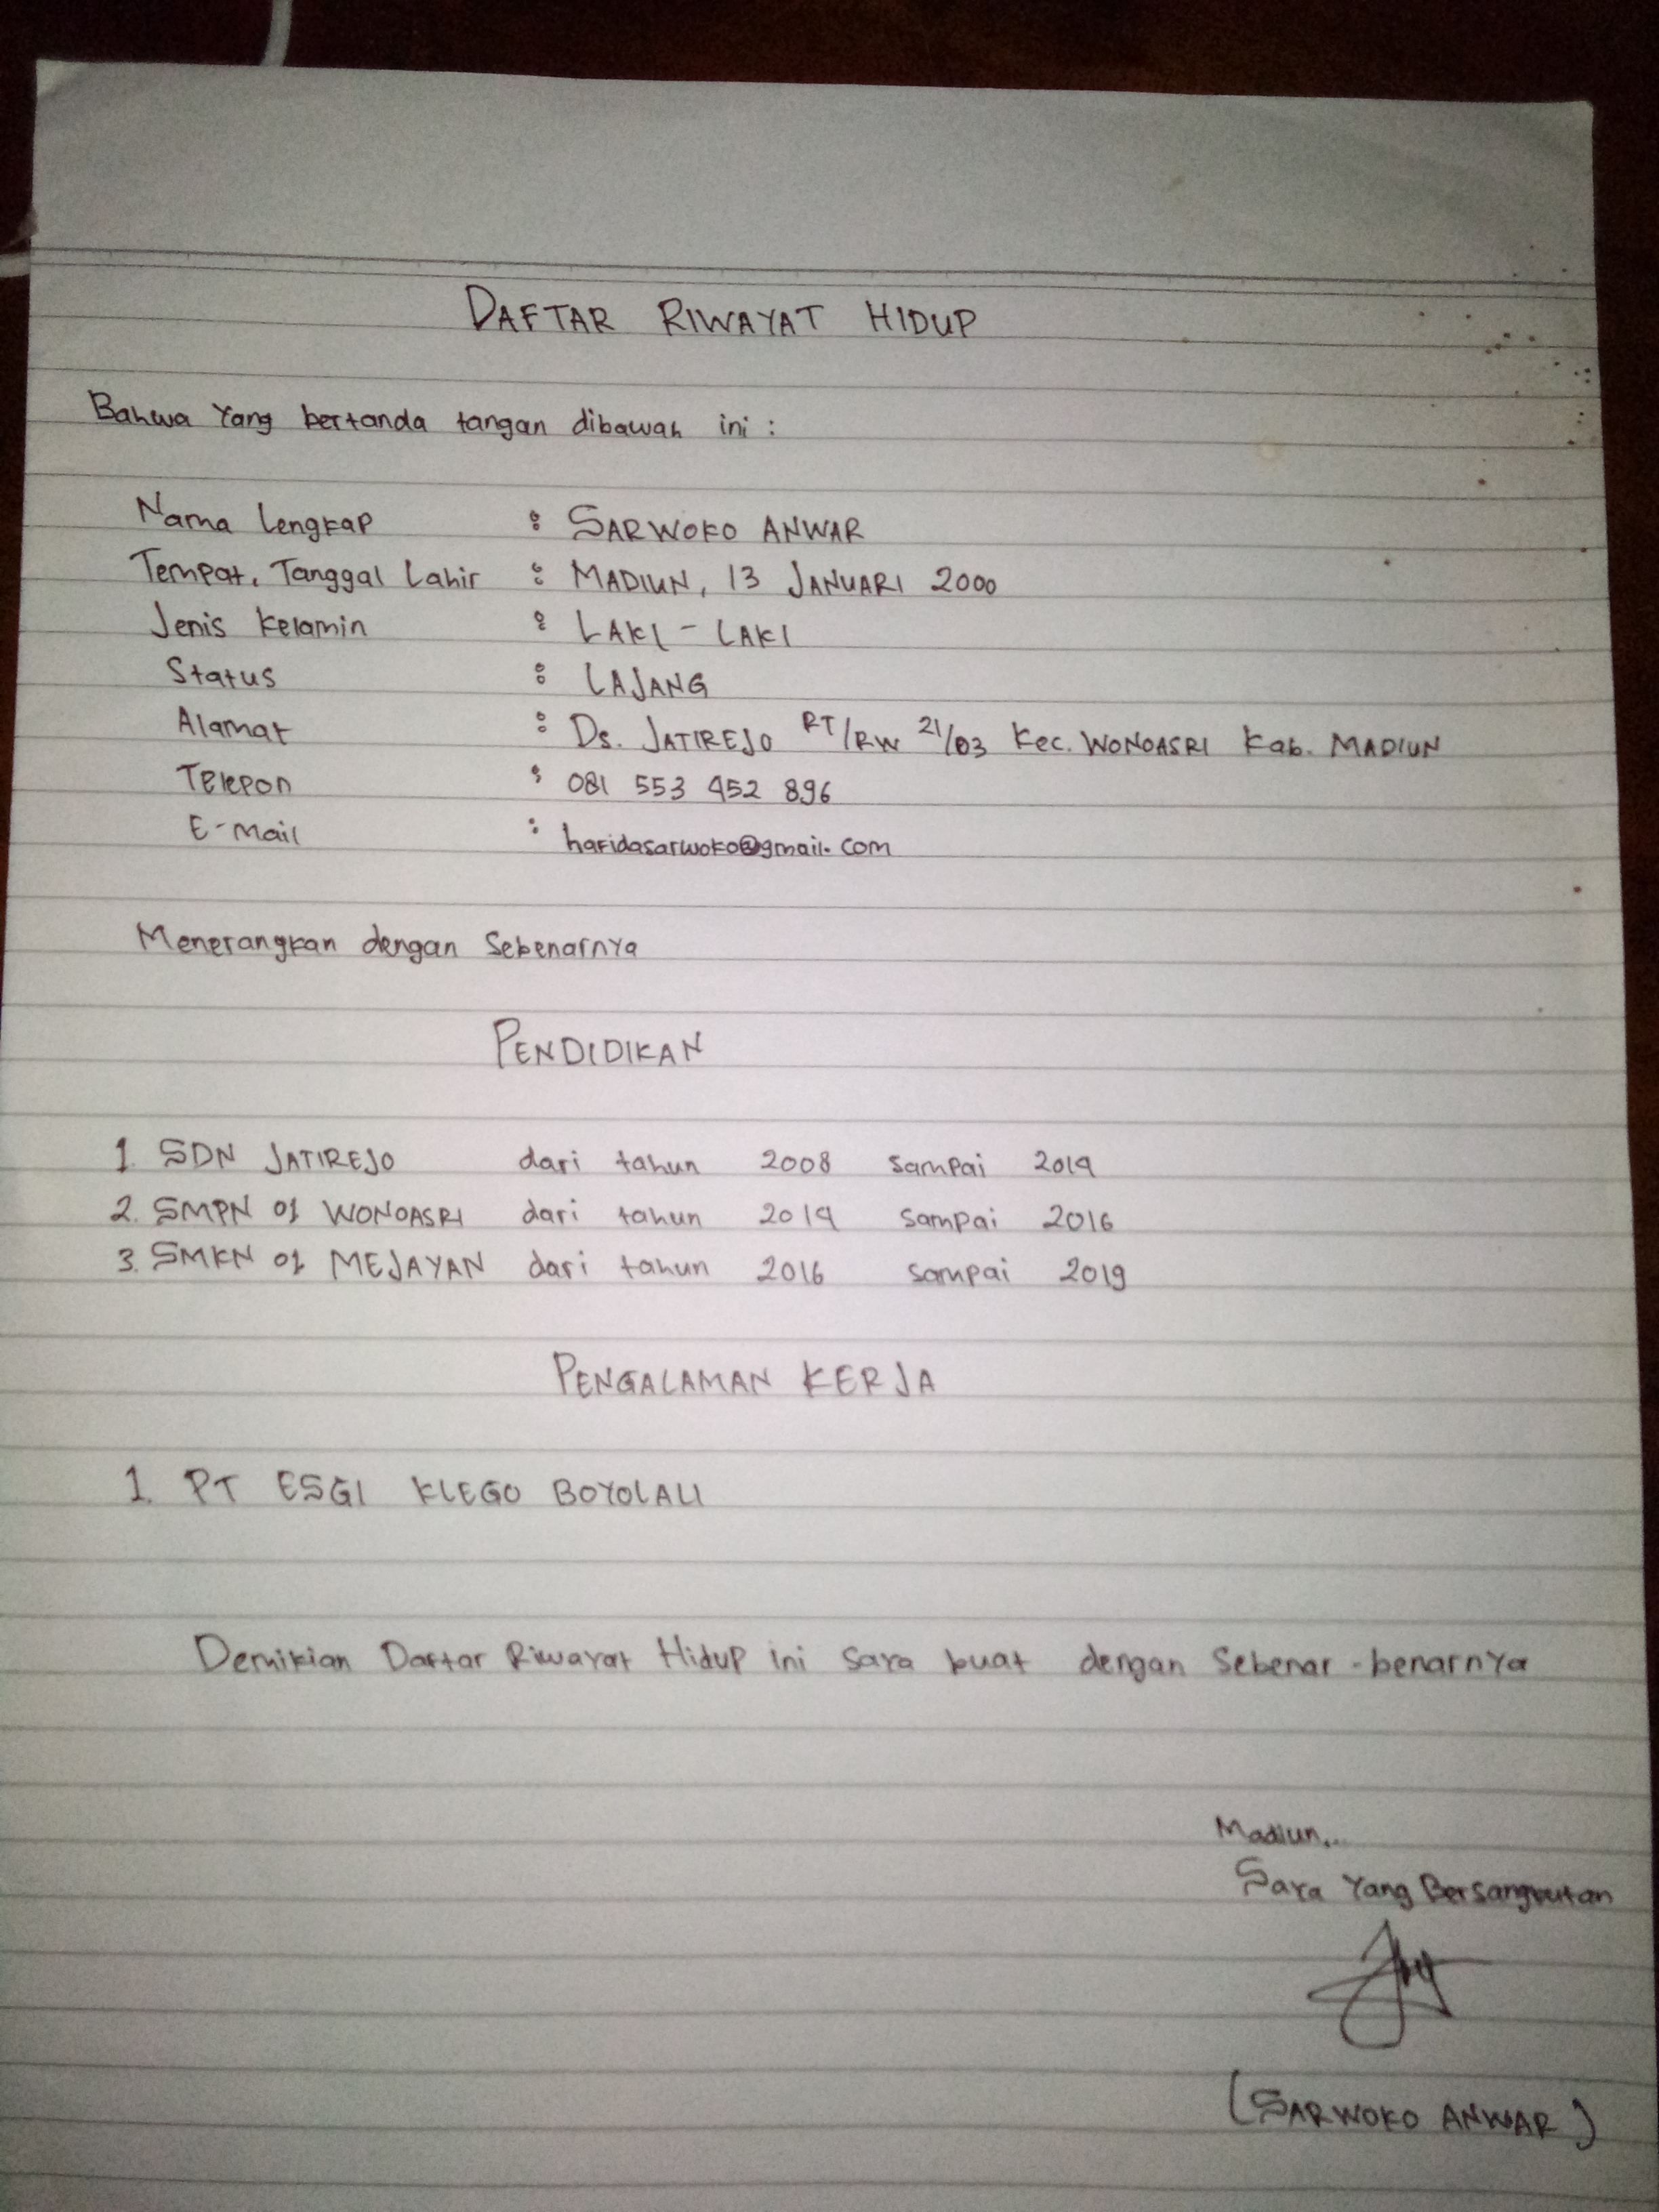 DAFTAR RIWAYAT HIDUP
Bahwa Yang bertanda tangan dibawah ini :
Nama Lengkap : SARWOKO ANWAR
Tempat, Tanggal Lahir : MADIUN, 13 JANUARI 2000
Jenis Kelamin : LAKI - LAKI
Status : LAJANG
Alamat : Ds. JATIREJO RT/RW 21/03 Kec. WONOASRI Kab. MADIUN
Telepon : 081 553 452 896
E-Mail : hafidasarwoko@gmail.com
Menerangkan dengan Sebenarnya
PENDIDIKAN
1. SDN JATIREJO dari tahun 2008 sampai 2014
2. SMPN 01 WONOASRI dari tahun 2014 sampai 2016
3. SMKN 01 MEJAYAN dari tahun 2016 sampai 2019
PENGALAMAN KERJA
1. PT ESGI KLEGO BOYOLALI
Demikian Daftar Riwayat Hidup ini saya buat dengan Sebenar-benarnya
Madiun...
Saya Yang Bersangkutan
(SARWOKO ANWAR)